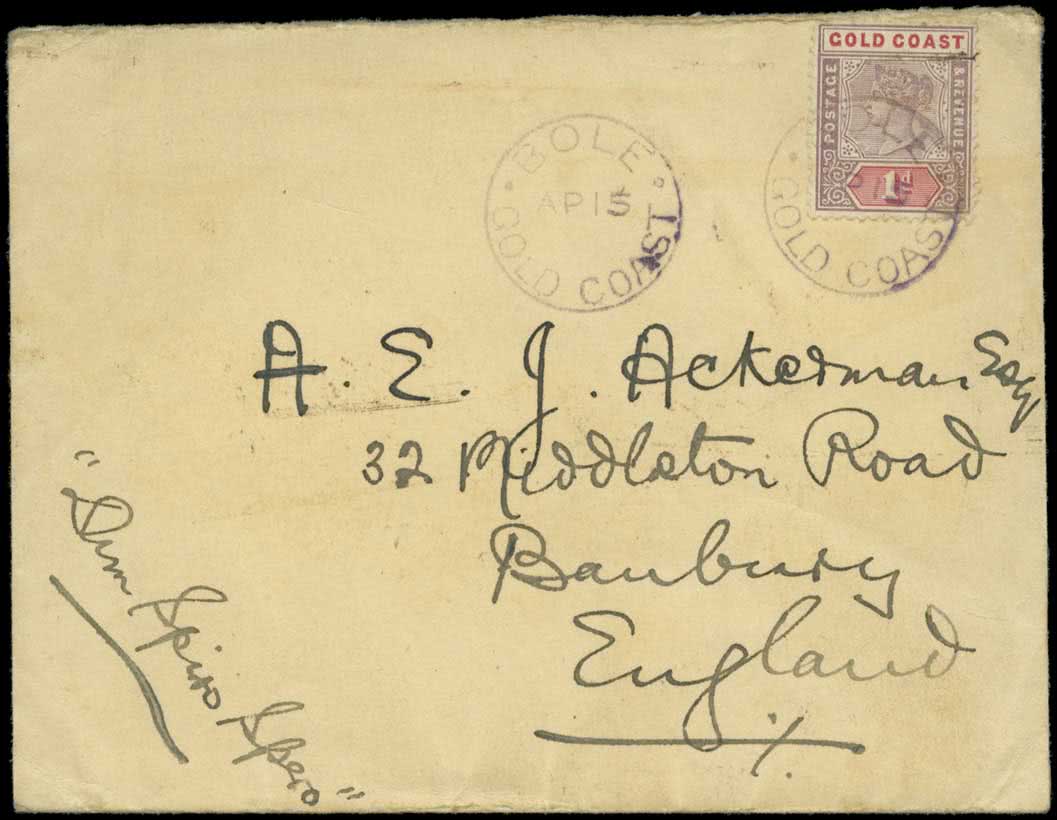 GOLD COAST
POSTAGE
& REVENUE
1d
BOLE
AP 15
GOLD COAST
GOLD COAST
A. E. J. Ackerman Esq
32 Middleton Road
Banbury
England
"Dum Spiro Spero"